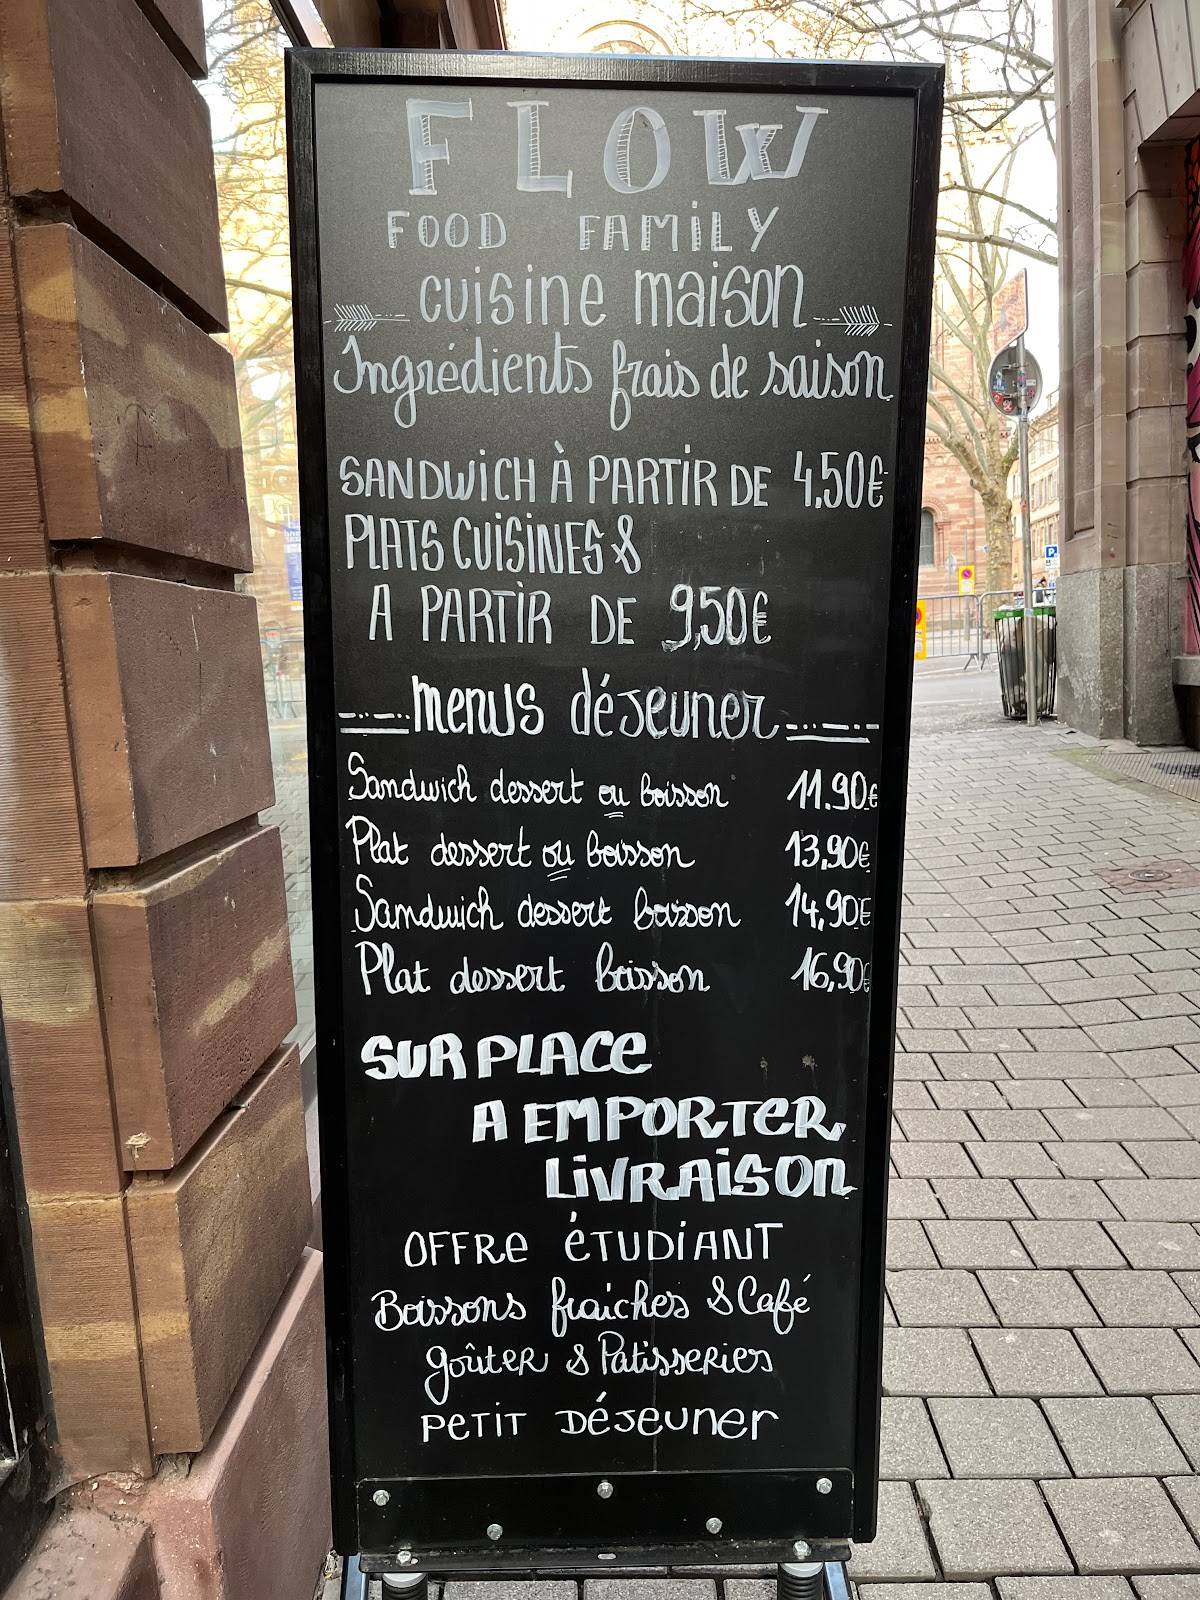 FLOW
FOOD FAMILY
cuisine maison
Ingrédients frais de saison
SANDWICH À PARTIR DE 4,50€
PLATS CUISINES &
A PARTIR DE 9,50€
menus déjeuner
Sandwich dessert ou boisson 11.90€
Plat dessert ou boisson 13,90€
Sandwich dessert boisson 14,90€
Plat dessert boisson 16,90€
SUR PLACE
A EMPORTER
LIVRAISON
OFFRE ÉTUDIANT
Boissons fraiches & Café
goûter & Patisseries
PETIT DÉJEUNER
P